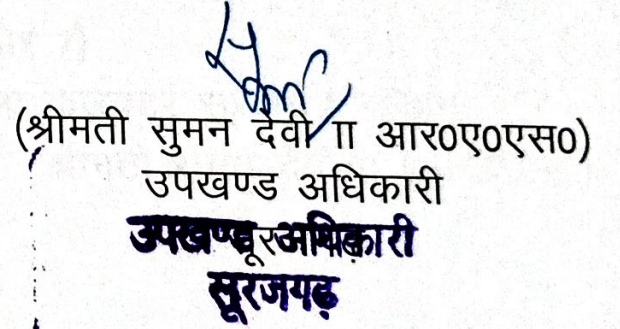 (श्रीमती सुमन देवी ाा आर०ए०एस०)
उपखण्ड अधिकारी
उपखण्ड अधिकारी
सूरजगढ़